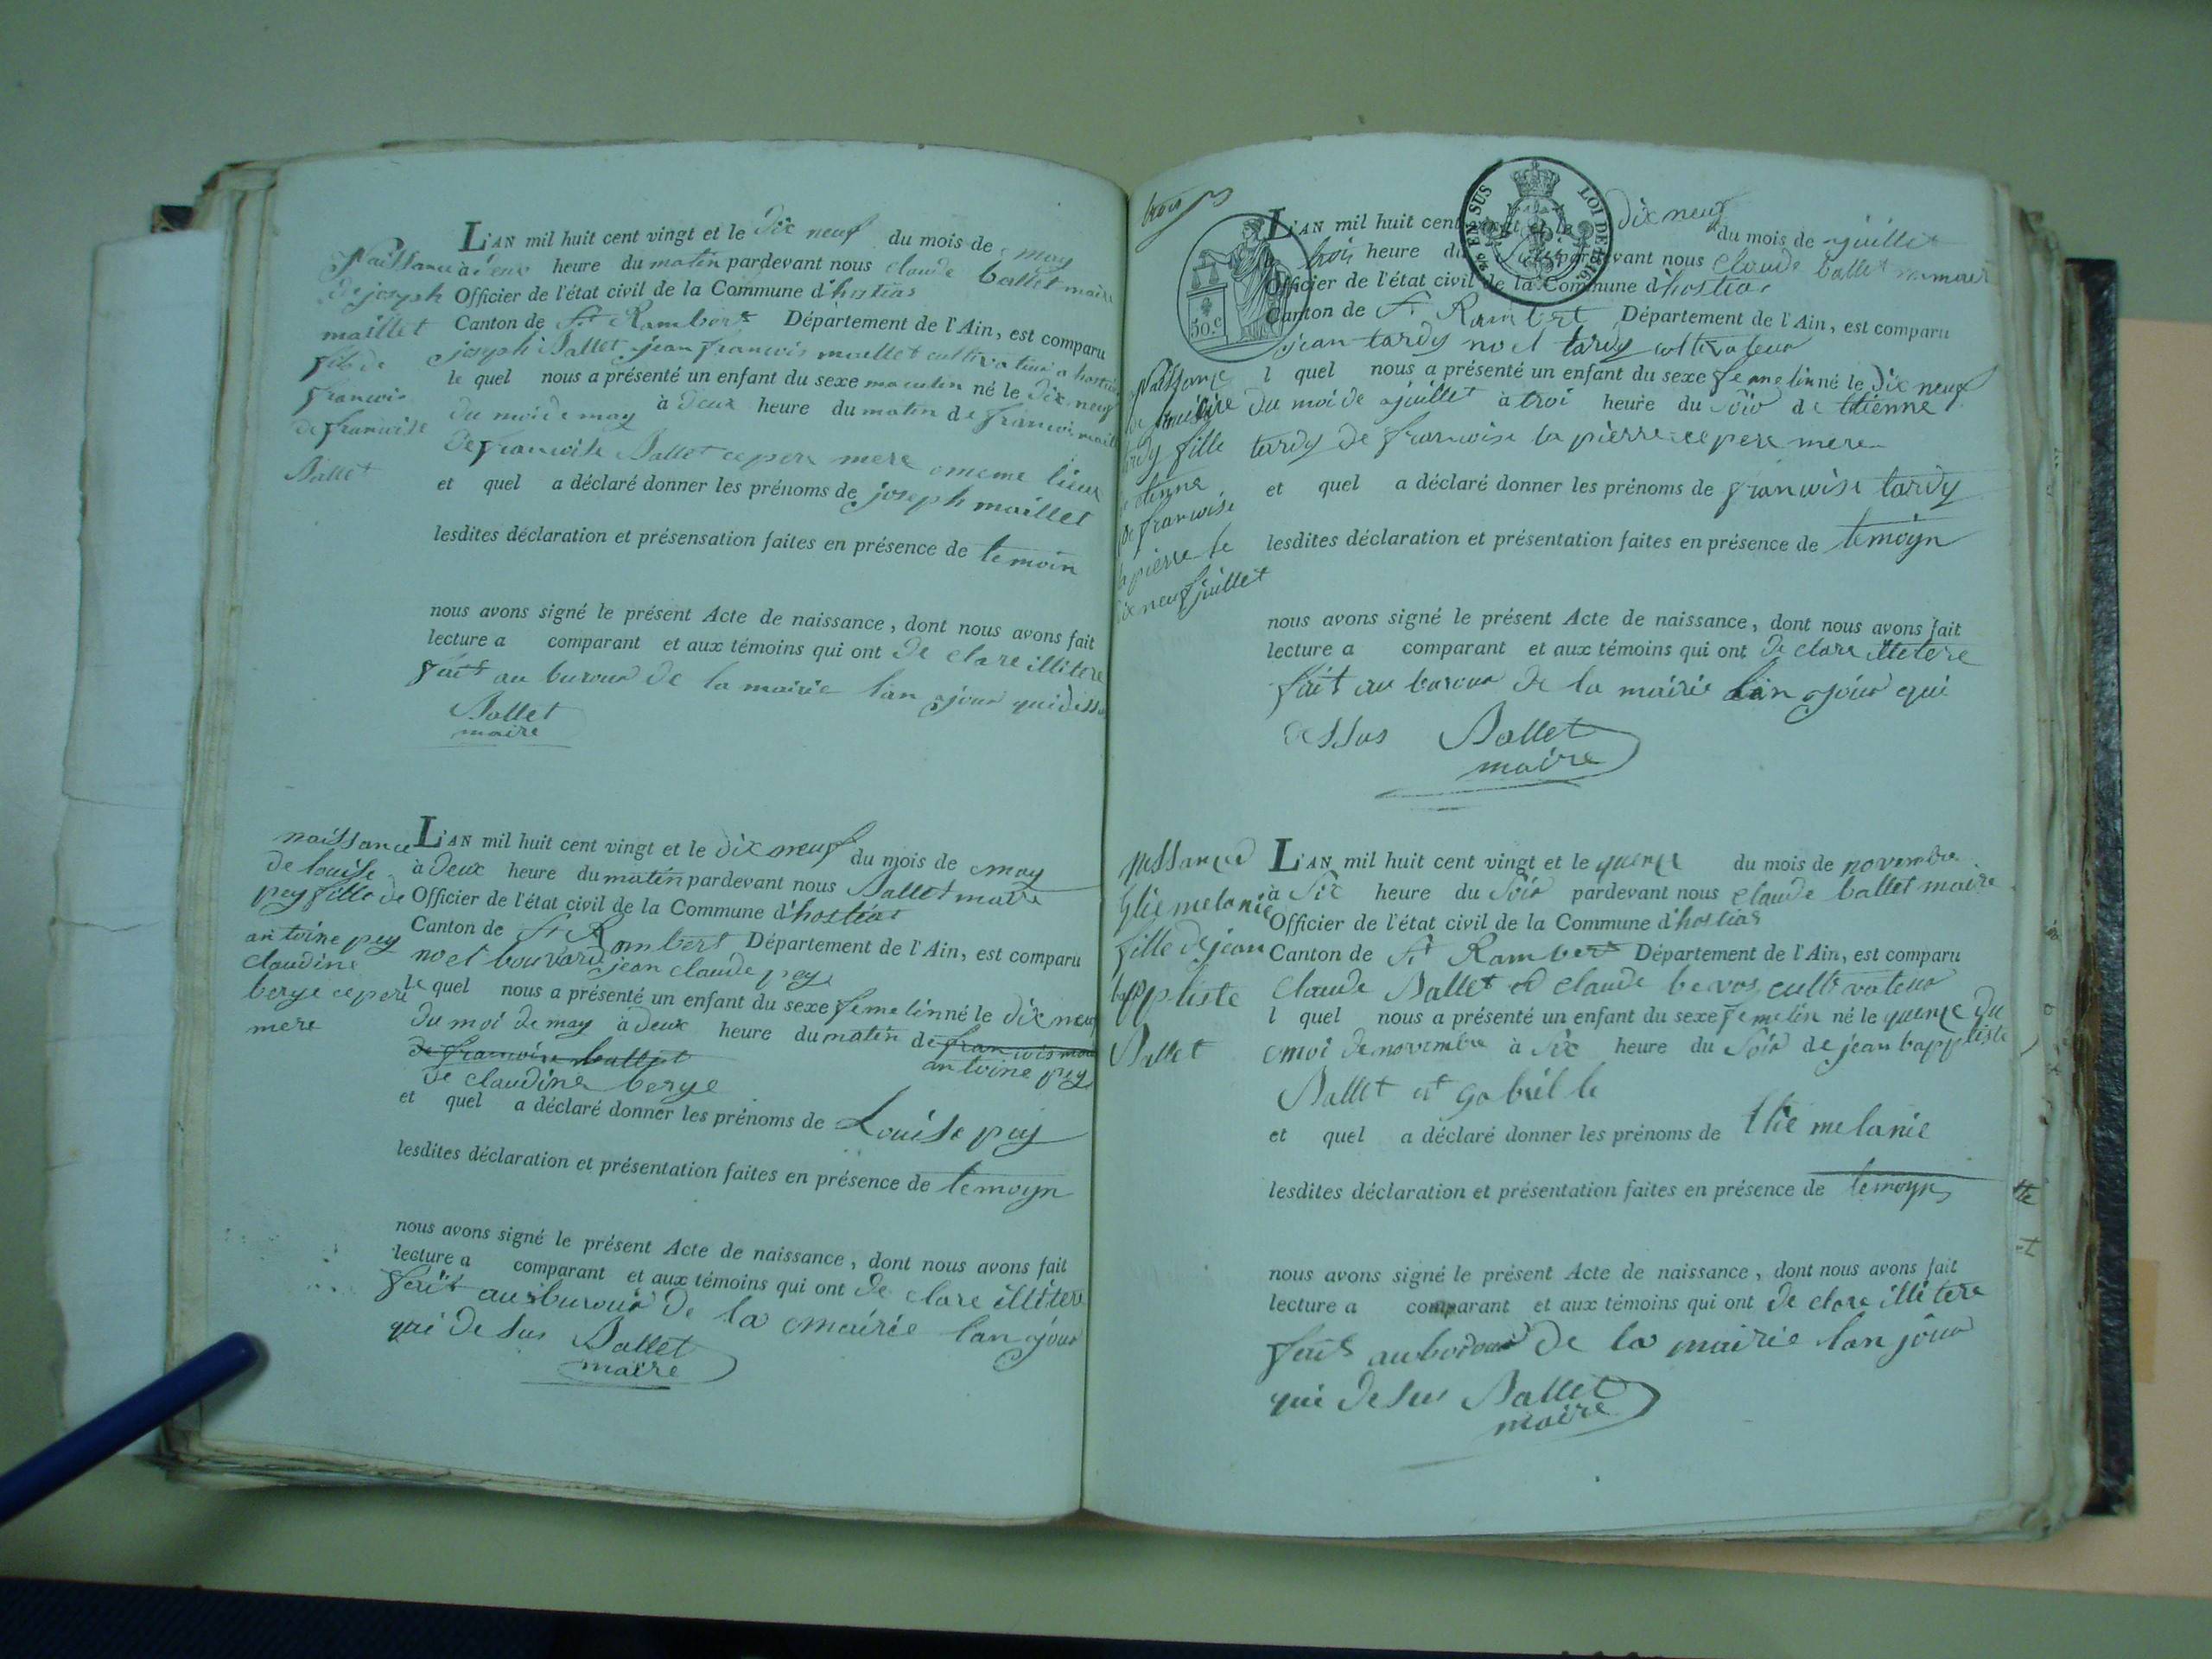 Naissance
de joseph
maillet
fils de
francois
de francoise
Ballet
L'AN mil huit cent vingt et le dix neuf du mois de may
à deux heure du matin pardevant nous claude ballet maire
Officier de l'état civil de la Commune d'hostias
Canton de St Rambert Département de l'Ain, est comparu
joseph Ballet jean francois maillet cultivateur a hostias
le quel nous a présenté un enfant du sexe masculin né le dix neuf
du moi de may à deux heure du matin de francois
de francoise Ballet ce pere mere meme lieux
et quel a déclaré donner les prénoms de joseph maillet
lesdites déclaration et présensation faites en présence de temoin
nous avons signé le présent Acte de naissance, dont nous avons fait
lecture a comparant et aux témoins qui ont de clare illitere
fait au buroux de la mairie lan jour qui dessus
Ballet
maire
naissance
de louise
pey fille de
antoine pey
claudine
berge ce pere
mere
L'AN mil huit cent vingt et le dix neuf du mois de may
à deux heure du matin pardevant nous Ballet maire
Officier de l'état civil de la Commune d'hostias
Canton de St Rambert Département de l'Ain, est comparu
noel bouvard jean claude pey
le quel nous a présenté un enfant du sexe femelin né le dix neuf
du moi de may à deux heure du matin de francois
de francoise ballet antoine pey
de claudine berge
et quel a déclaré donner les prénoms de Louise pey
lesdites déclaration et présentation faites en présence de temoyn
nous avons signé le présent Acte de naissance, dont nous avons fait
lecture a comparant et aux témoins qui ont de clare illitere
fait au buroux de la mairie lan jour
qui desus Ballet
maire
trois
EN SUS LOI DE 1816
50.c
Naissance
de
tardy fille
etienne
de francoise
la pierre le
dix neuf juillet
L'AN mil huit cent vingt et le dix neuf du mois de juillet
à trois heure du soir pardevant nous claude ballet maire
Officier de l'état civil de la Commune d'hostias
Canton de St Rambert Département de l'Ain, est comparu
jean tardy noel tardy cultivateur
l quel nous a présenté un enfant du sexe femelin né le dix neuf
du moi de juillet à troi heure du soir de etienne
tardy de francoise la pierre ce pere mere
et quel a déclaré donner les prénoms de francoise tardy
lesdites déclaration et présentation faites en présence de temoyn
nous avons signé le présent Acte de naissance, dont nous avons fait
lecture a comparant et aux témoins qui ont de clare illetere
fait au buroux de la mairie lan jour qui
dessus Ballet
maire
nessance
melanie
fille de jean
bapptiste
Ballet
L'AN mil huit cent vingt et le quenze du mois de novembre
à six heure du soir pardevant nous claude ballet maire
Officier de l'état civil de la Commune d'hostias
Canton de St Rambert Département de l'Ain, est comparu
claude Ballet et claude bevos cultivateur
l quel nous a présenté un enfant du sexe femelin né le quenze du
moi de novembre à six heure du soir de jean bapptiste
Ballet et gabrielle
et quel a déclaré donner les prénoms de melanie
lesdites déclaration et présentation faites en présence de temoyn
nous avons signé le présent Acte de naissance, dont nous avons fait
lecture a comparant et aux témoins qui ont de clare illitere
fait au boroux de la mairie lan jour
qui desus Ballet
maire